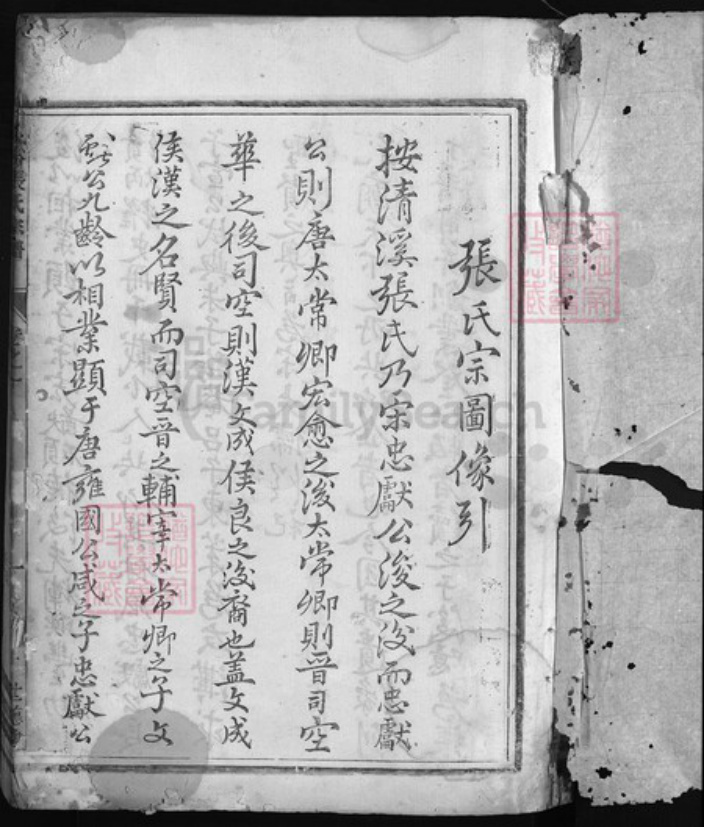 張氏宗圖像引
按清溪張氏乃宋忠獻公浚之後而忠獻
公則唐太常卿宏愈之後太常卿則晉司空
華之後司空則漢文成侯良之後裔也蓋文成
侯漢之名賢而司空晉之輔宰太常卿之子文
獻公九齡以相業顯于唐雍國公咸之子忠獻公
FamilySearch